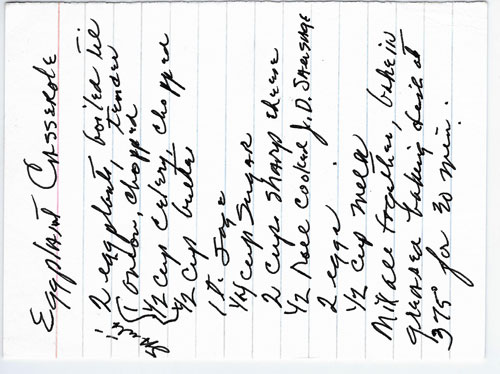 Eggplant Casserole
2 eggplants, boiled til
tender
1 onion, chopped
1/2 cup celery chopped
1/2 cup butter
1 t. Sage
1/4 cup sugar
2 cups sharp cheese
1/2 roll cooked J.D. Sausage
2 eggs
1/2 cup milk
Mix all together, bake in
greased baking dish at
375° for 30 min.